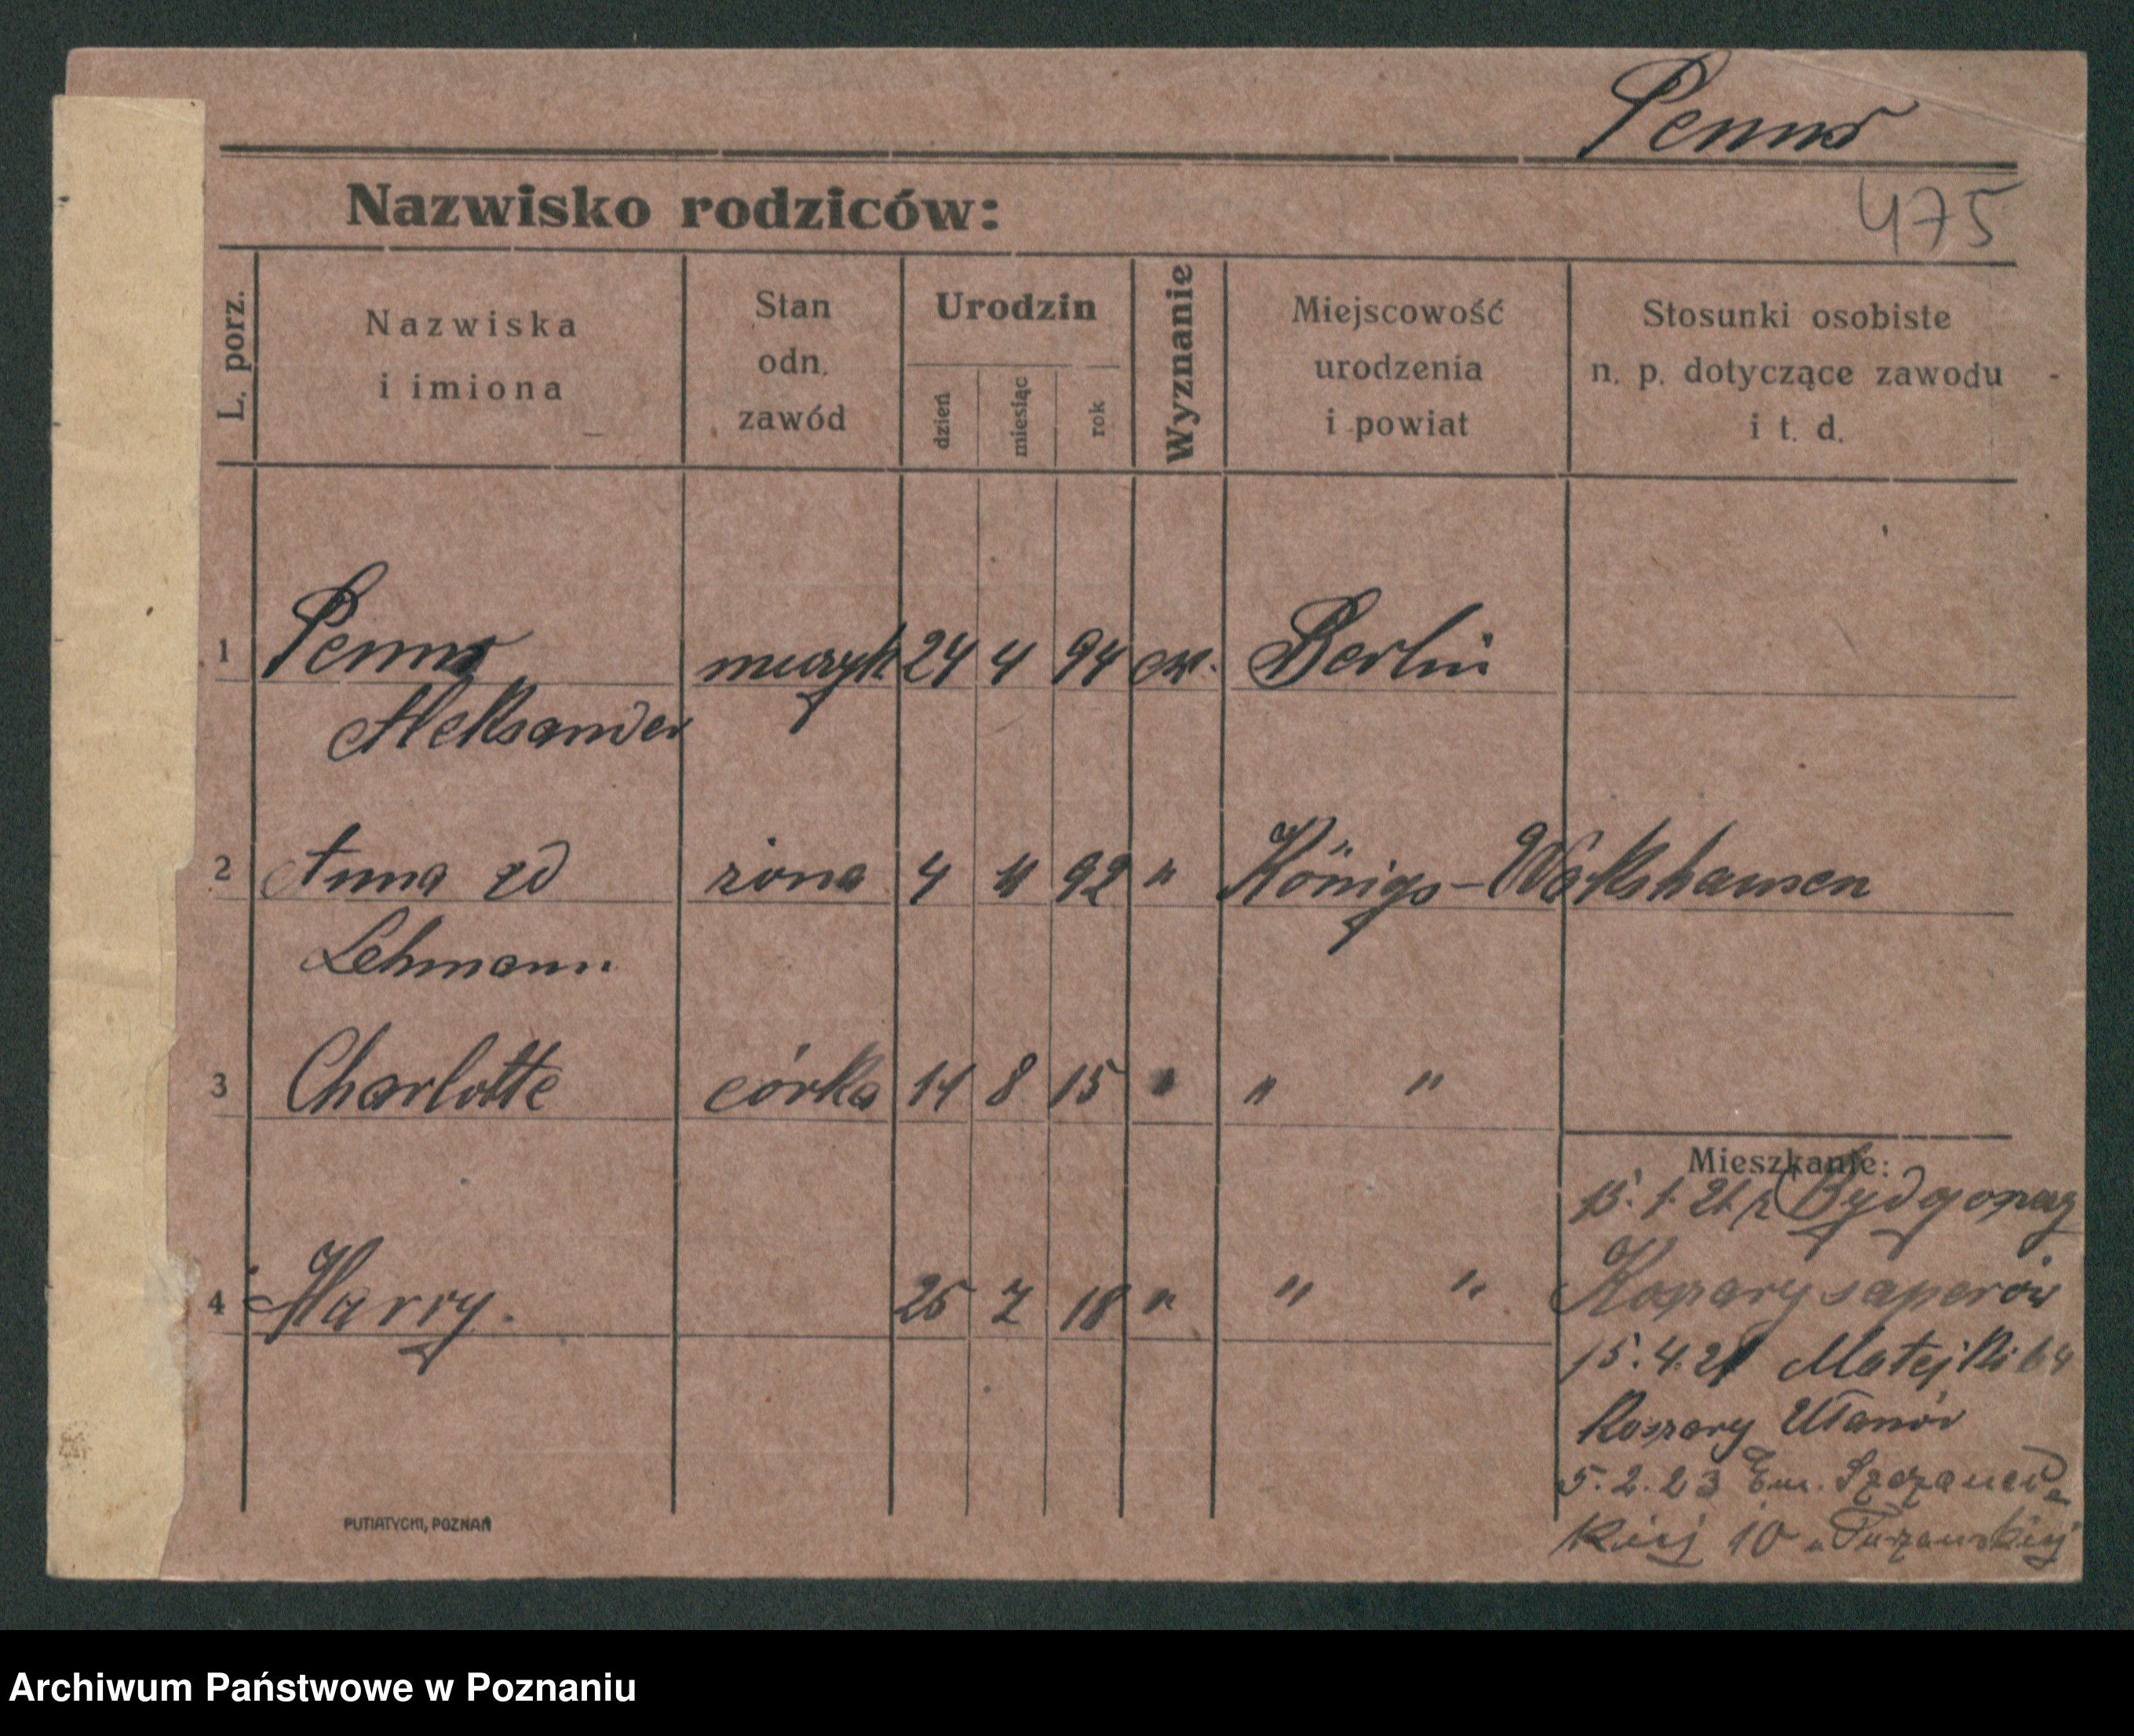 Penno
475
Nazwisko rodziców:
L. porz.
Nazwiska
i imiona
Stan
odn.
zawód
Urodzin
dzień
miesiąc
rok
Wyznanie
Miejscowość
urodzenia
i powiat
Stosunki osobiste
n. p. dotyczące zawodu
i t. d.
1 Penno muzyk 24 4 94 ew. Berlin
Aleksander
2 Anna zd żona 4 11 92 " Königs-
Lehmann
3 Charlotte córka 14 8 15 " " "
4 Harry. 25 7 18 " " "
Mieszkanie:
15.1.21 z Bydgoszcz
Koszary saperów
15.4.21 Matejki 64
Koszary Ułanów
5.2.23
10
PUTIATYCKI, POZNAŃ
Archiwum Państwowe w Poznaniu